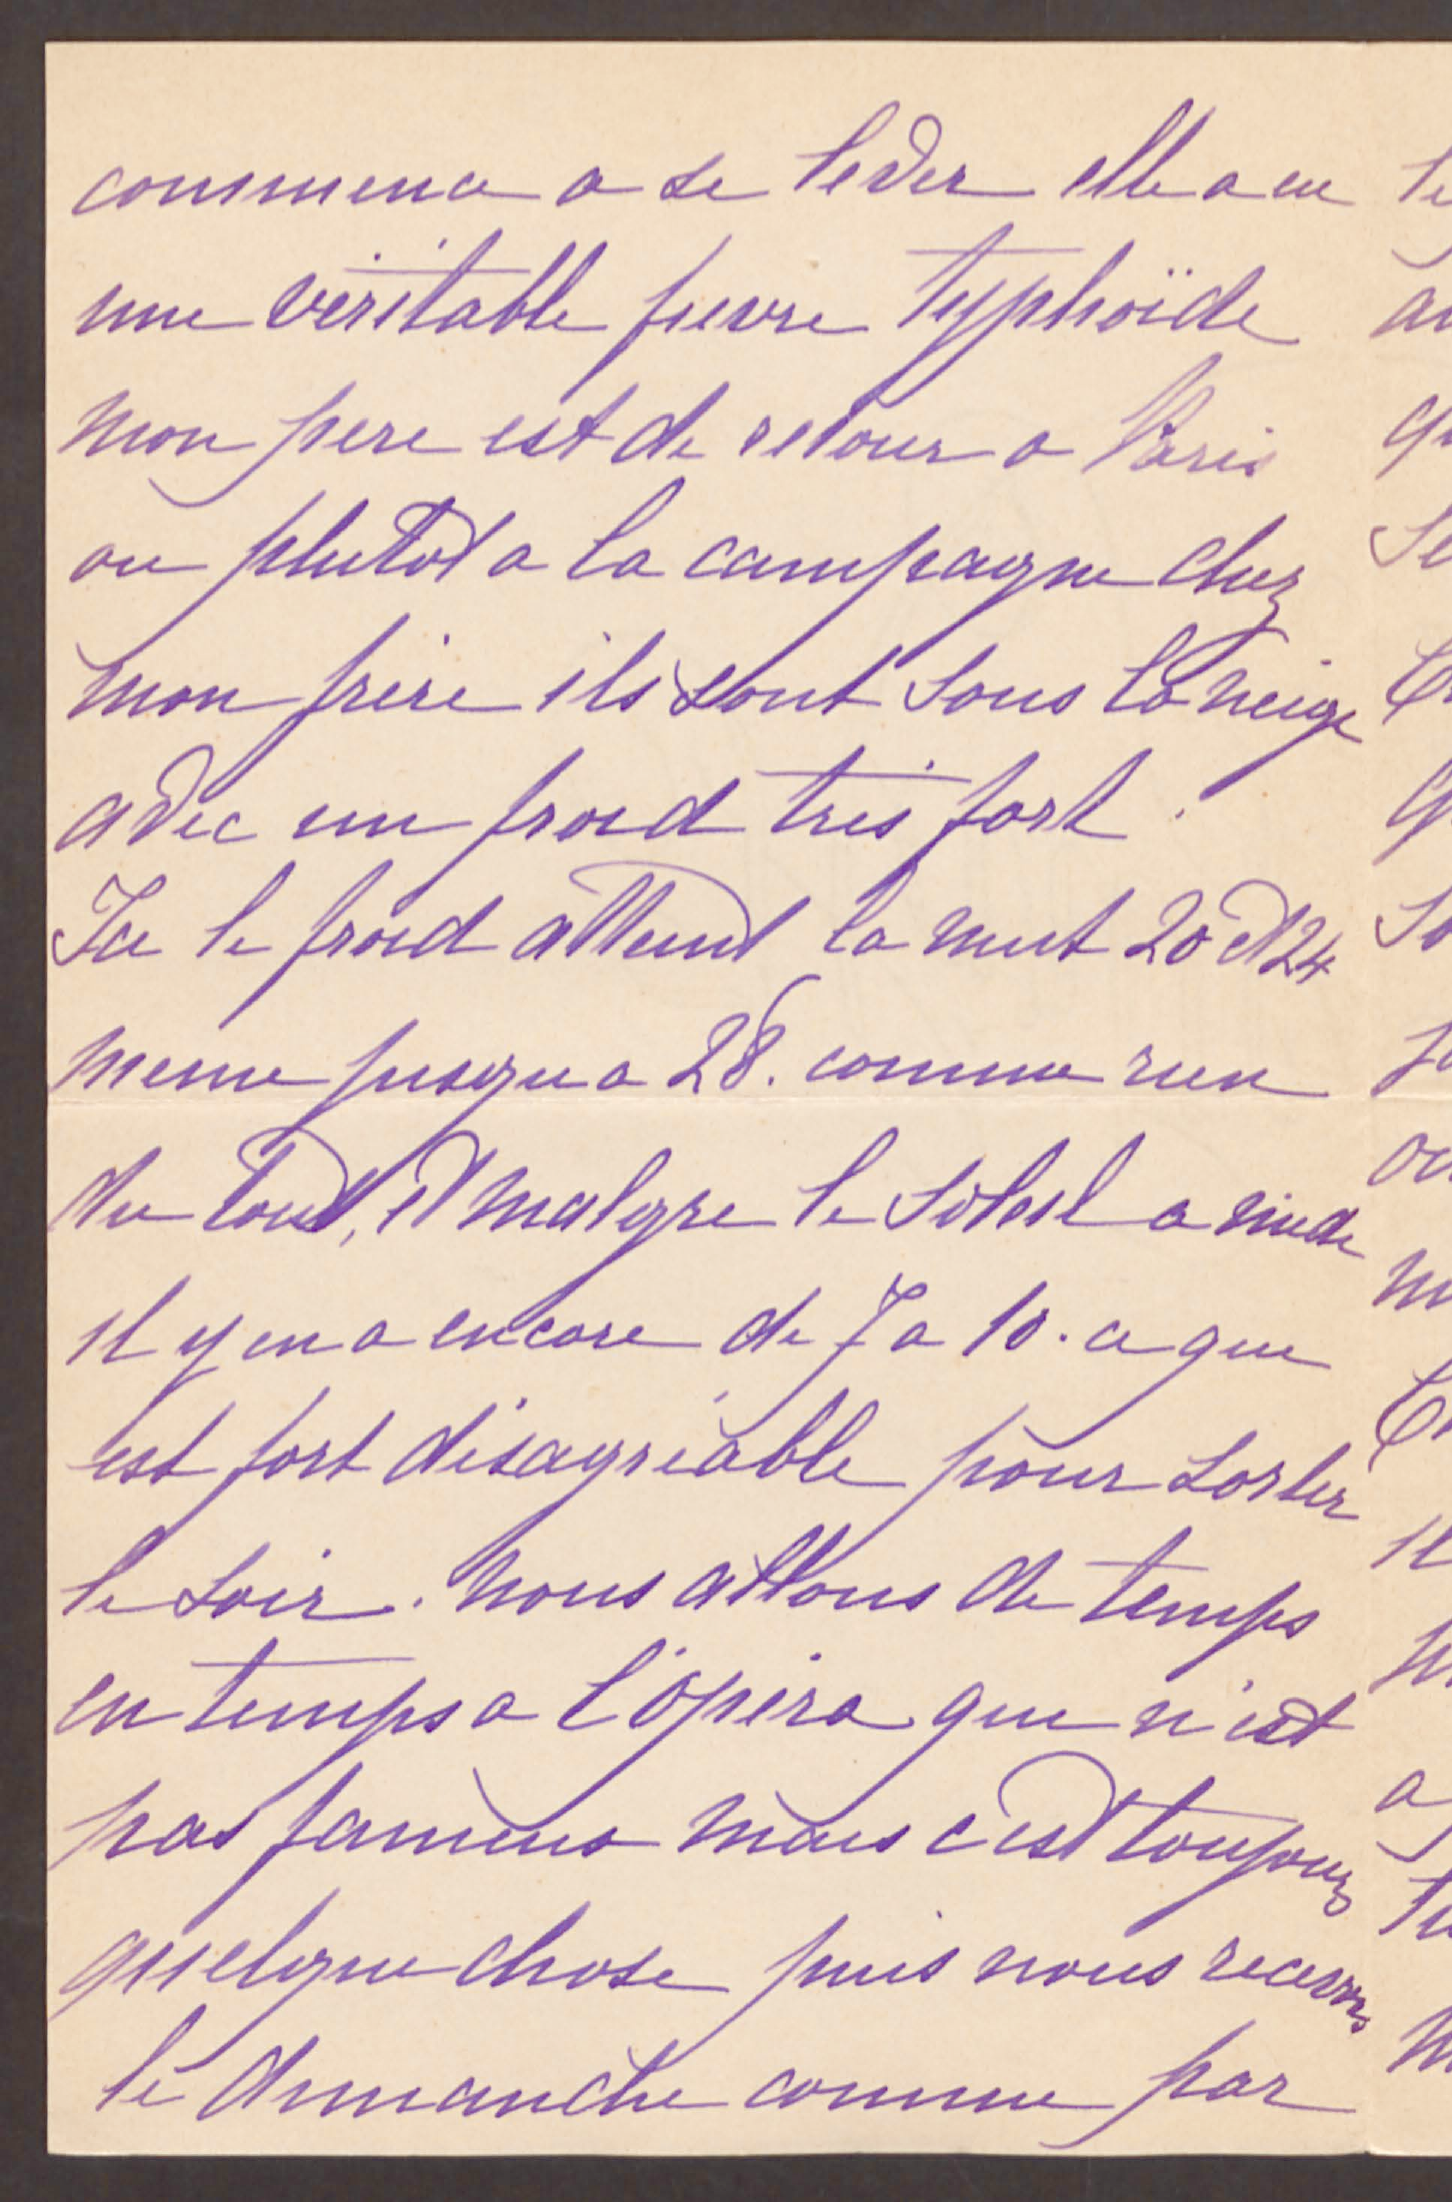 commence a se lever elle a eu
une véritable fievre typhoïde
mon pere est de retour a Paris
ou plutot a la campagne chez
mon frère ils sont sous la neige
avec un froid très fort.
Ici le froid atteint la nuit 20 et 24
meme jusqu a 28. comme rien
du tout, et malgre le soleil a midi
il y en a encore de 7 a 10. ce que
est fort désagréable pour sortir
le soir. nous allons de temps
en temps a l'opéra que n'est
pas fameux mais c'est toujours
quelque chose puis nous recevons
le dimanche comme par